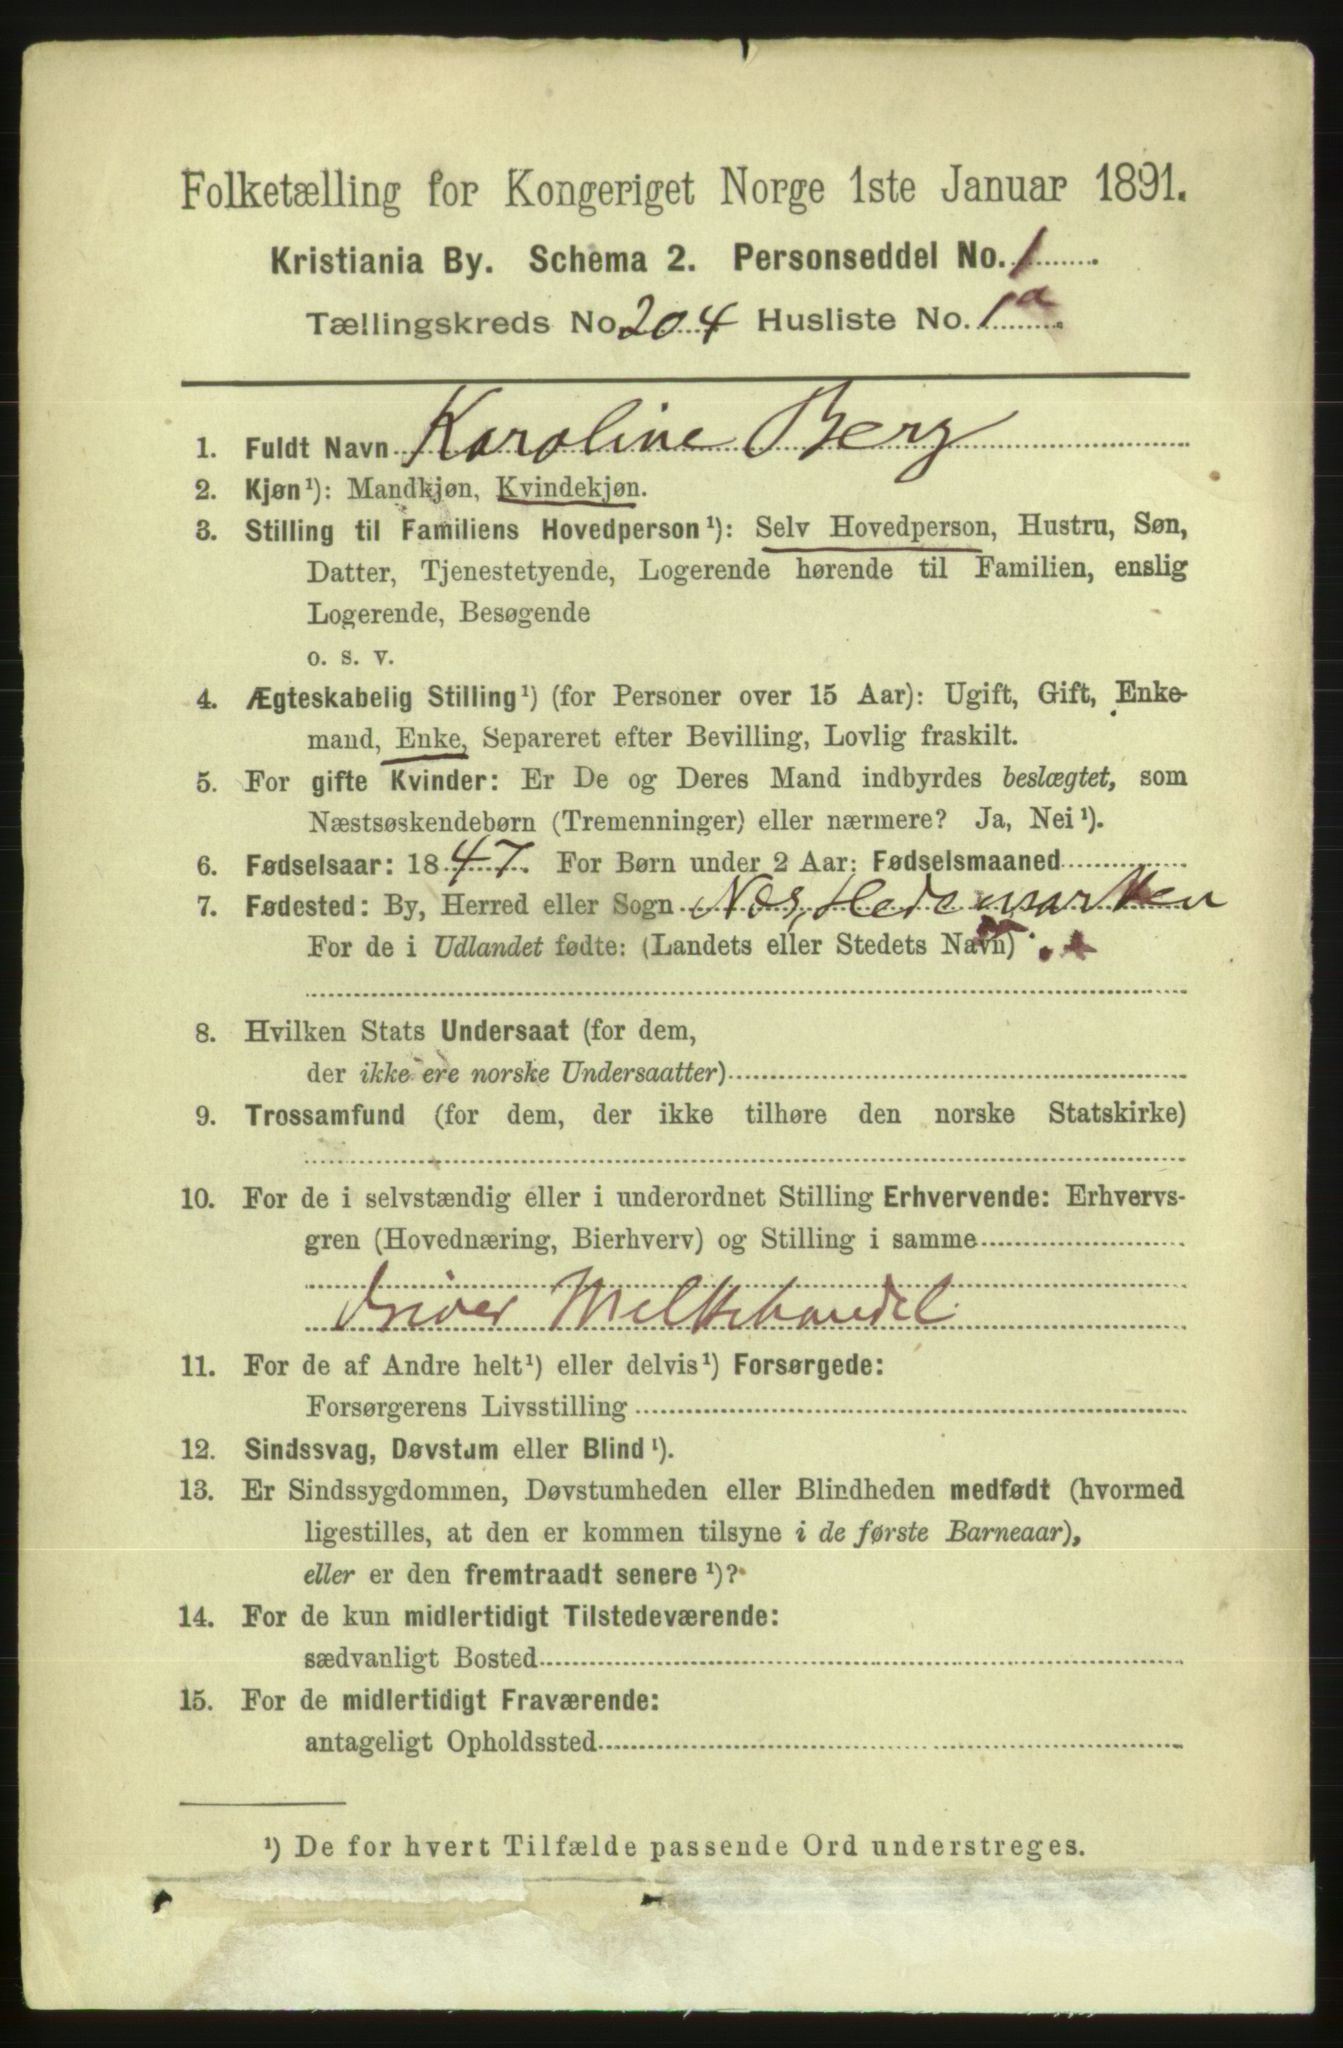 Folketælling for Kongeriget Norge 1ste Januar 1891.
Kristiania By. Schema 2. Personseddel No. 1
Tællingskreds No. 204 Husliste No. 1a
1. Fuldt Navn Karoline Berg
2. Kjøn¹): Mandkjøn, Kvindekjøn.
3. Stilling til Familiens Hovedperson¹): Selv Hovedperson, Hustru, Søn,
Datter, Tjenestetyende, Logerende hørende til Familien, enslig
Logerende, Besøgende
o. s. v.
4. Ægteskabelig Stilling¹) (for Personer over 15 Aar): Ugift, Gift, Enke-
mand, Enke, Separeret efter Bevilling, Lovlig fraskilt.
5. For gifte Kvinder: Er De og Deres Mand indbyrdes beslægtet, som
Næstsøskendebørn (Tremenninger) eller nærmere? Ja, Nei¹).
6. Fødselsaar: 1847. For Børn under 2 Aar: Fødselsmaaned
7. Fødested: By, Herred eller Sogn Næs, Hedemarken
For de i Udlandet fødte: (Landets eller Stedets Navn)
8. Hvilken Stats Undersaat (for dem,
der ikke ere norske Undersaatter)
9. Trossamfund (for dem, der ikke tilhøre den norske Statskirke)
10. For de i selvstændig eller i underordnet Stilling Erhvervende: Erhvervs-
gren (Hovednæring, Bierhverv) og Stilling i samme
driver Melkehandel.
11. For de af Andre helt¹) eller delvis¹) Forsørgede:
Forsørgerens Livsstilling
12. Sindssvag, Døvstum eller Blind¹).
13. Er Sindssygdommen, Døvstumheden eller Blindheden medfødt (hvormed
ligestilles, at den er kommen tilsyne i de første Barneaar),
eller er den fremtraadt senere¹)?
14. For de kun midlertidigt Tilstedeværende:
sædvanligt Bosted
15. For de midlertidigt Fraværende:
antageligt Opholdssted
¹) De for hvert Tilfælde passende Ord understreges.